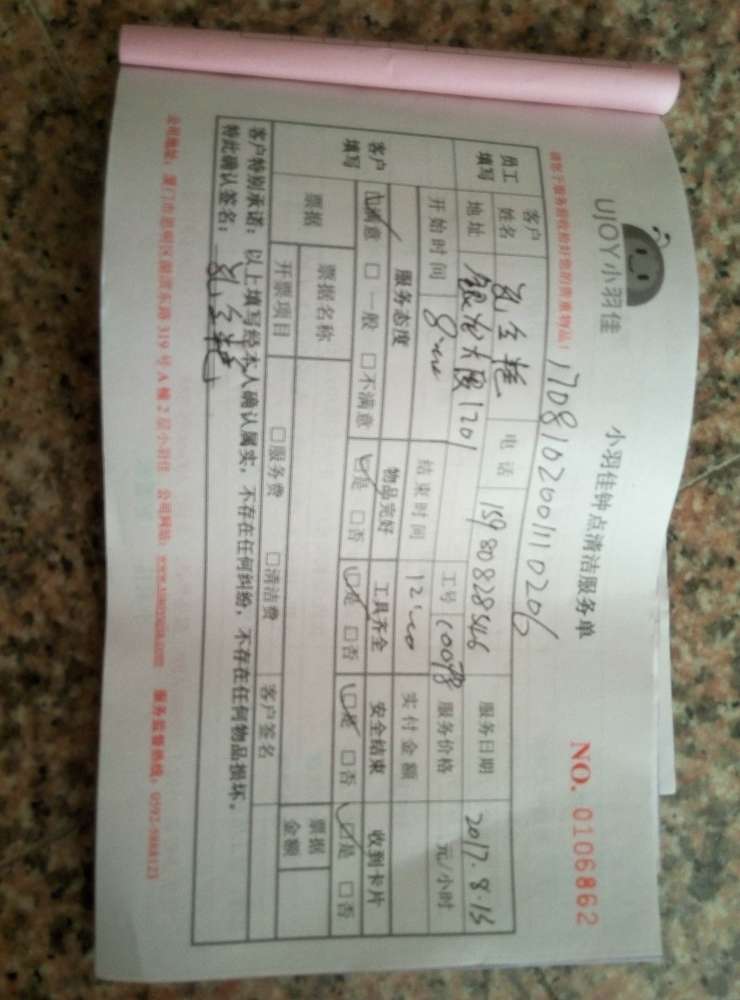 UJOY小羽佳
小羽佳钟点清洁服务单
NO. 0106862
请您于服务前收拾好您的贵重物品！
1708102001110206
员工填写 客户姓名 电话 15980828546 服务日期 2017.8.15
地址 银龙大厦1201 工号 服务价格 元/小时
开始时间 8:00 结束时间 12:00 实付金额
客户填写 服务态度 物品完好 工具齐全 安全结束 收到卡片
☑满意 □一般 □不满意 ☑是 □否 ☑是 □否 ☑是 □否 ☑是 □否
票据 票据名称 票据金额
开票项目 □服务费 □清洁费 客户签名
客户特别承诺：以上填写经本人确认属实，不存在任何纠纷，不存在任何物品损坏。
特此确认签名：
公司地址：厦门市思明区 东路319号A幢2层小羽佳 公司网站： 服务监督热线：0592-5888123